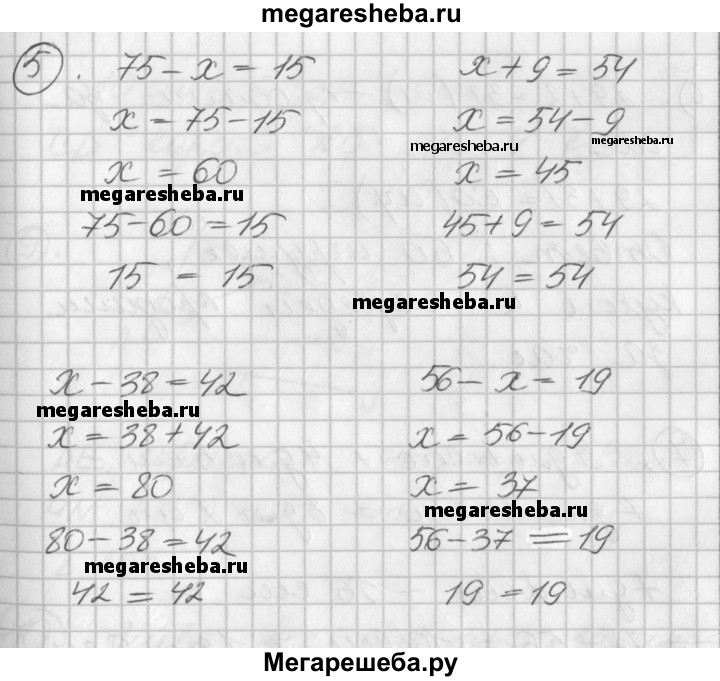 megaresheba.ru
5. 75 - x = 15
x = 75 - 15
x = 60
megaresheba.ru
75 - 60 = 15
15 = 15
x + 9 = 54
x = 54 - 9
megaresheba.ru
megaresheba.ru
x = 45
45 + 9 = 54
54 = 54
megaresheba.ru
x - 38 = 42
megaresheba.ru
x = 38 + 42
x = 80
80 - 38 = 42
megaresheba.ru
42 = 42
56 - x = 19
x = 56 - 19
x = 37
megaresheba.ru
56 - 37 = 19
19 = 19
megaresheba.ru
Мегарешеба.ру